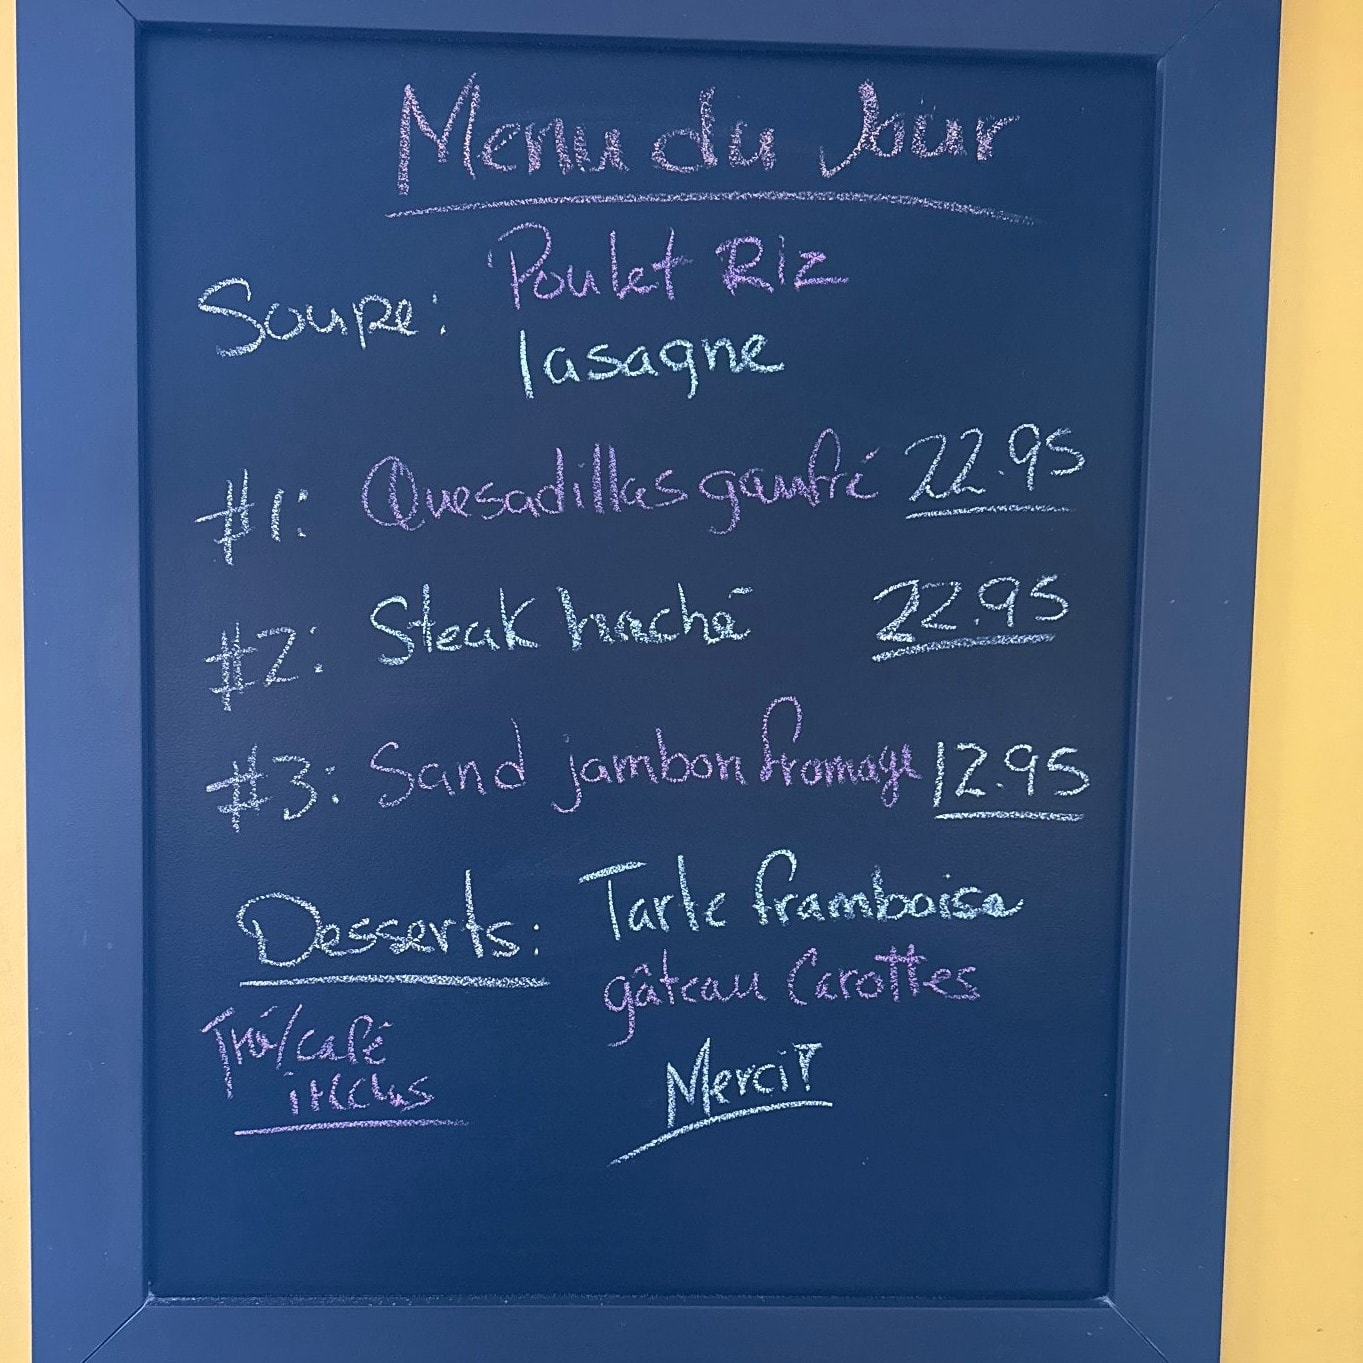 Menu du Jour
Soupe: Poulet Riz
lasagne
#1: Quesadillas gaufré 22.95
#2: Steak haché 22.95
#3: Sand jambon fromage 12.95
Desserts: Tarte framboise
gâteau Carottes
Thé/café
inclus
Merci!